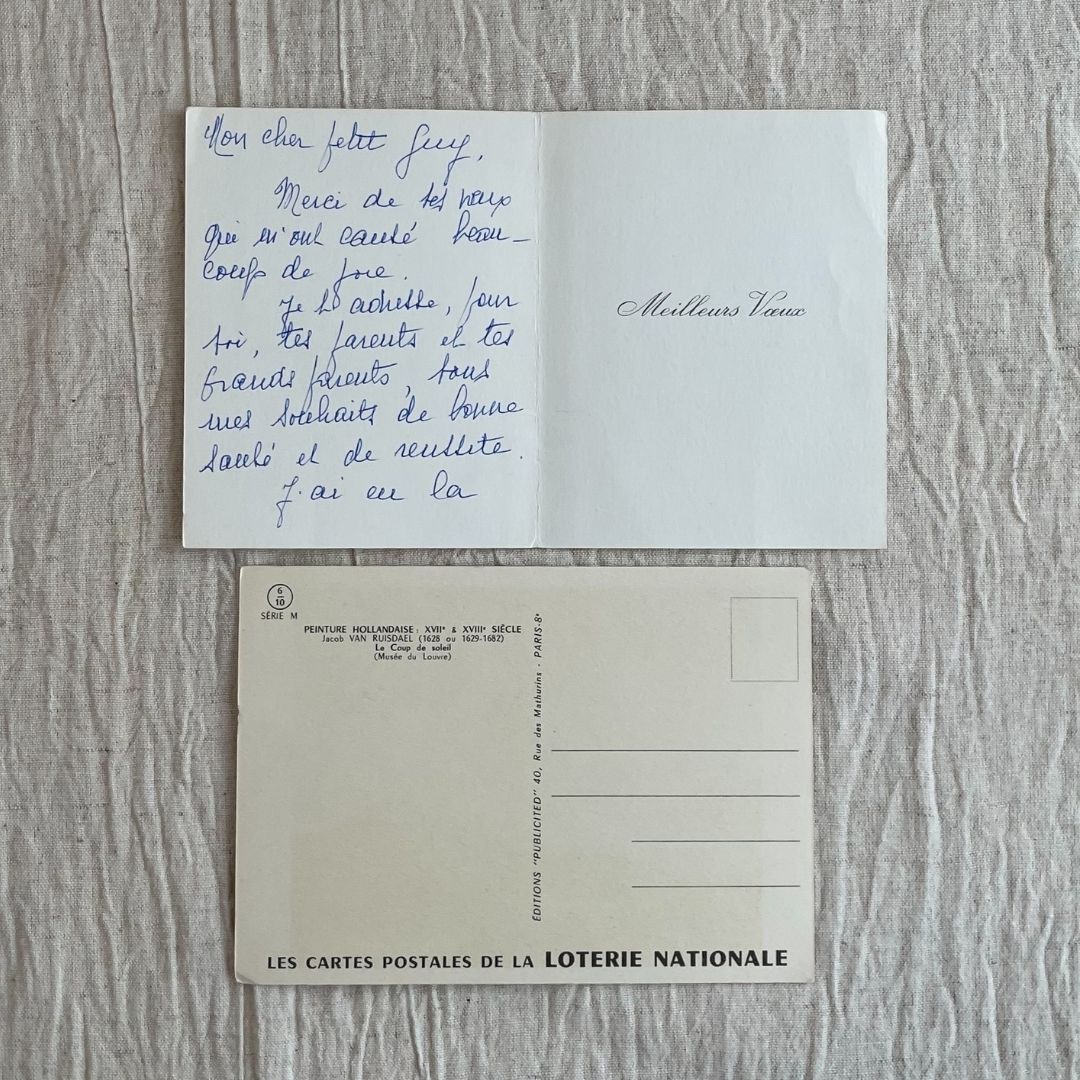 Mon cher petit Guy,
Merci de tes vœux
qui m'ont causé beau-
coup de joie.
Je t'adresse, pour
toi, tes parents et tes
grands parents, tous
mes souhaits de bonne
santé et de reussite.
J'ai eu la
Meilleurs Vœux
6
10
SÉRIE M
PEINTURE HOLLANDAISE : XVIIe & XVIIIe SIÈCLE
Jacob VAN RUISDAEL (1628 ou 1629-1682)
Le Coup de soleil
(Musée du Louvre)
ÉDITIONS "PUBLICITED" 40, Rue des Mathurins - PARIS-8e
LES CARTES POSTALES DE LA LOTERIE NATIONALE